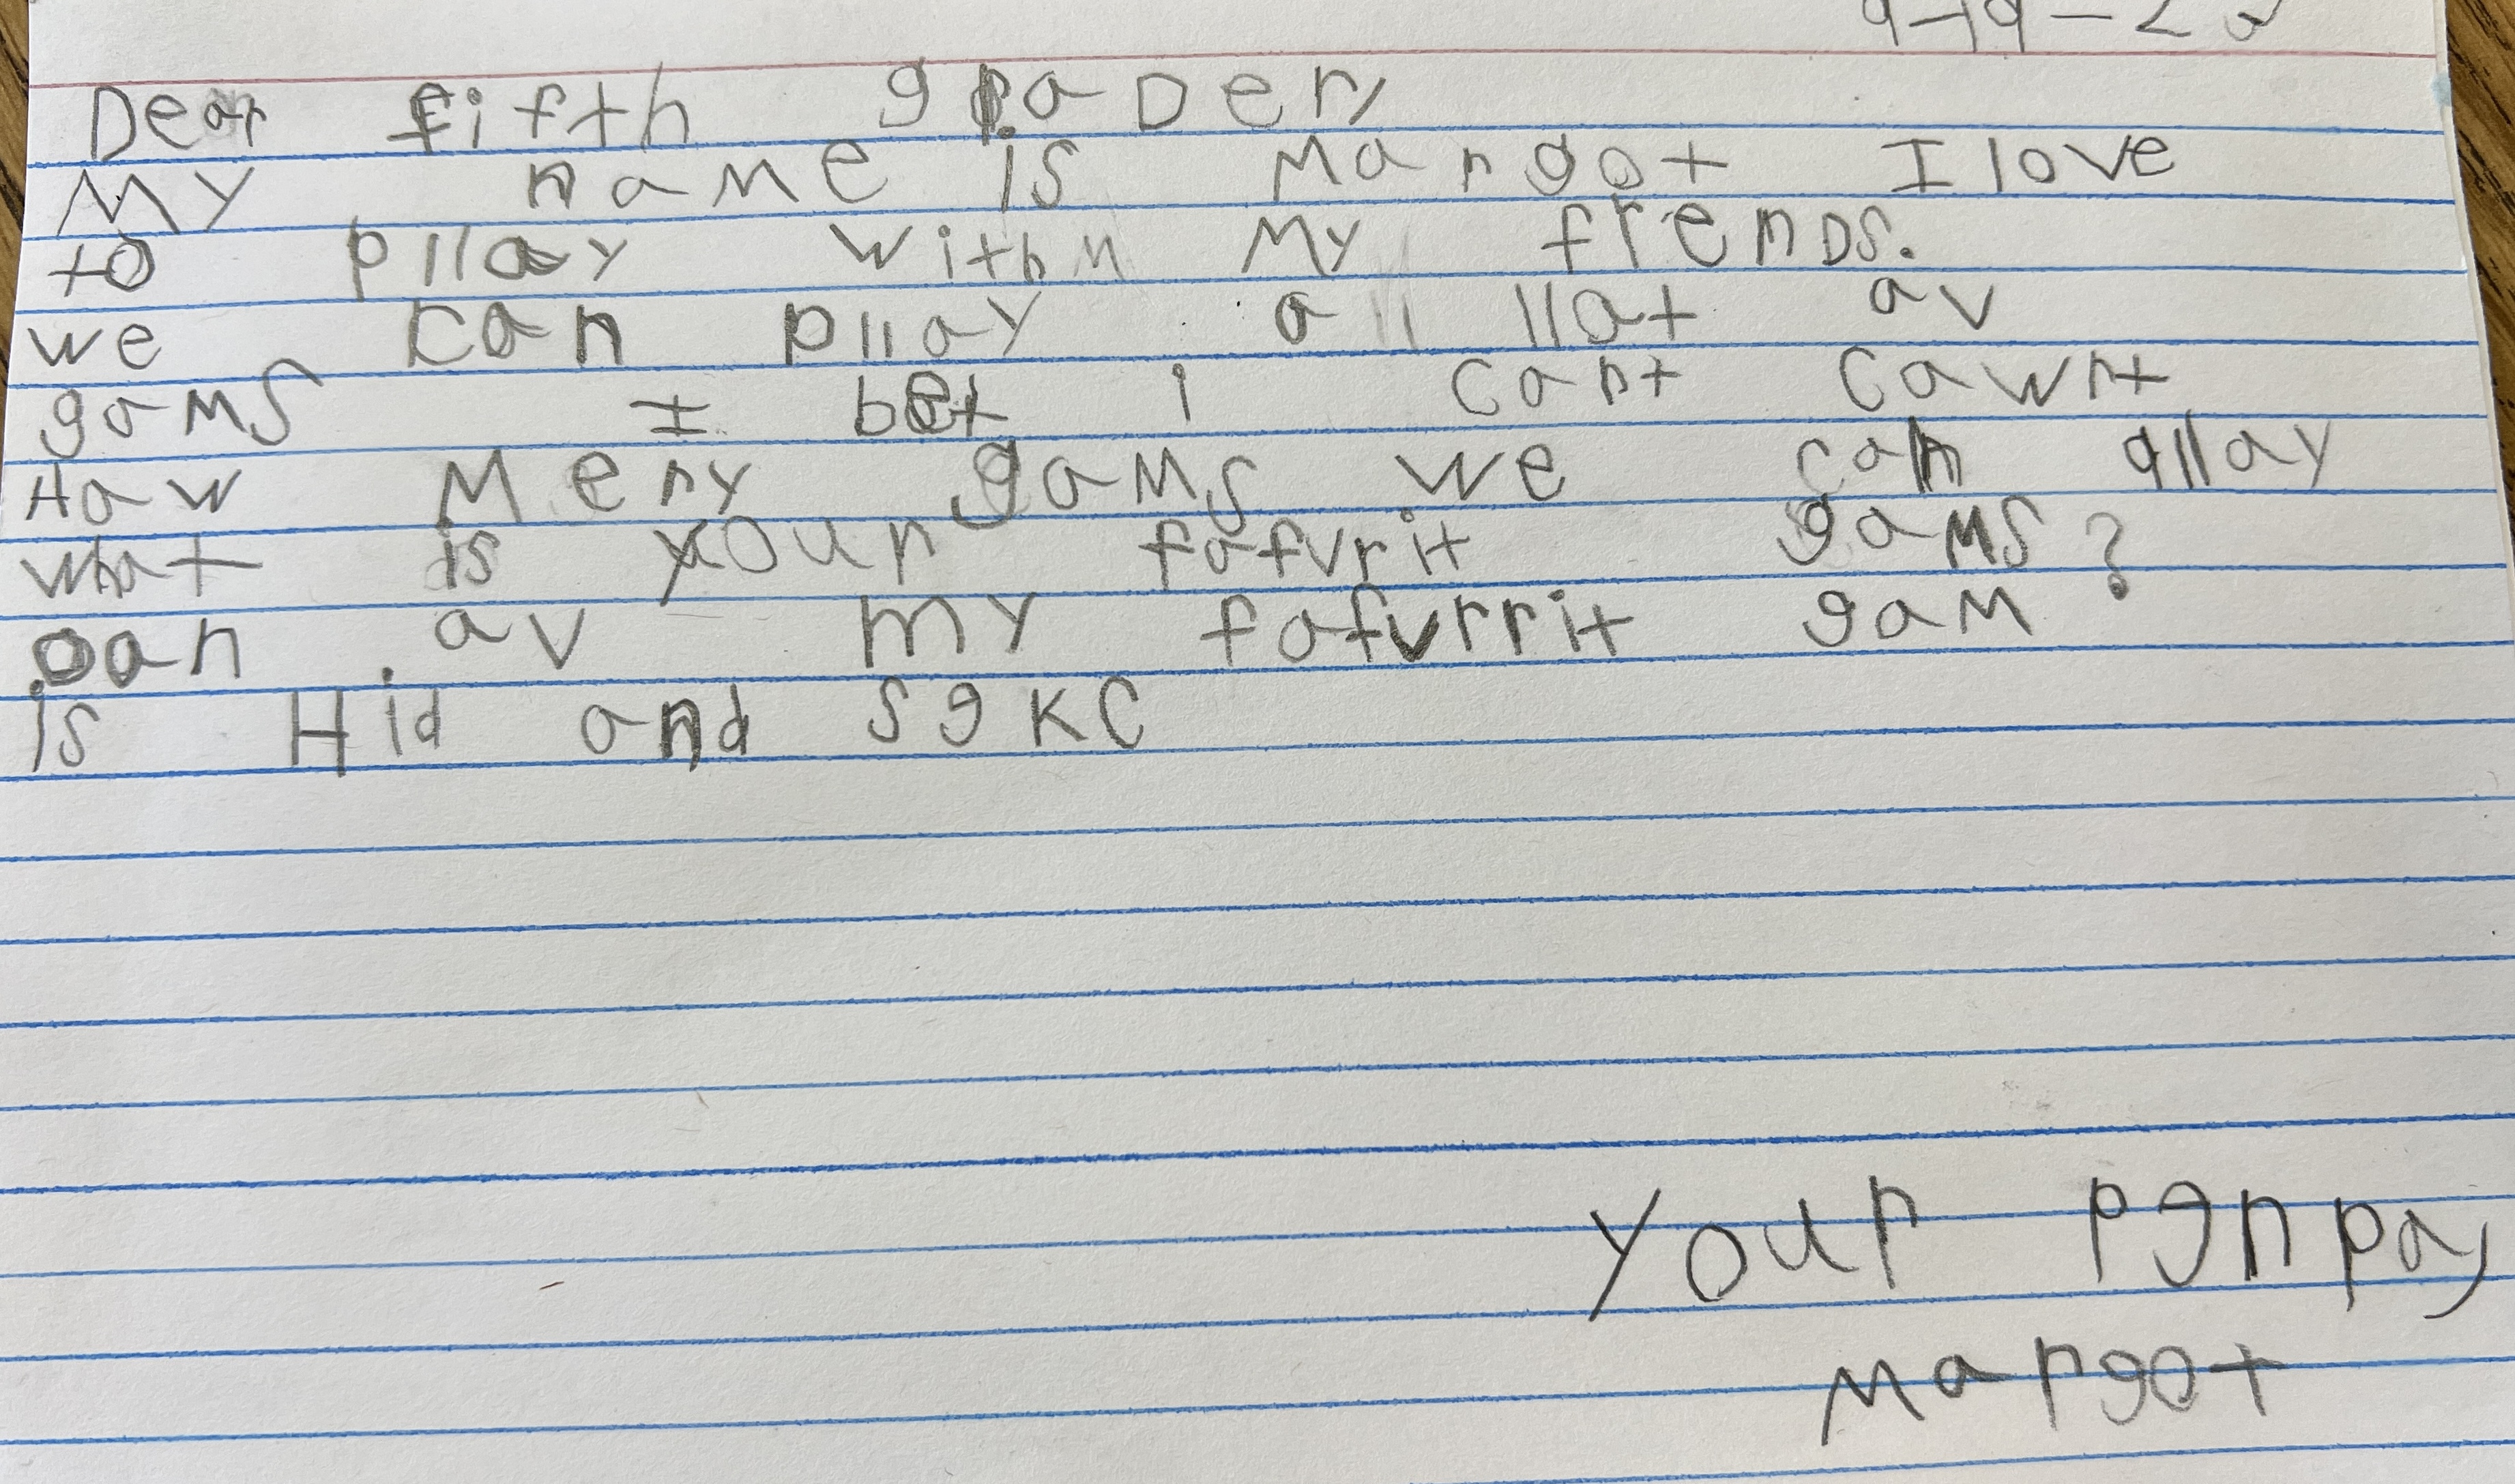 Dear fifth graDer,
My name is Margot I love
to pllay with My frenDs.
we can pllay a llat av
gams I bet i cant cawnt
Haw Meny gams we can qllay
what is your fafvrit gams?
oan av my fafvrrit gam
is Hid and sekc
your penpay
Margot